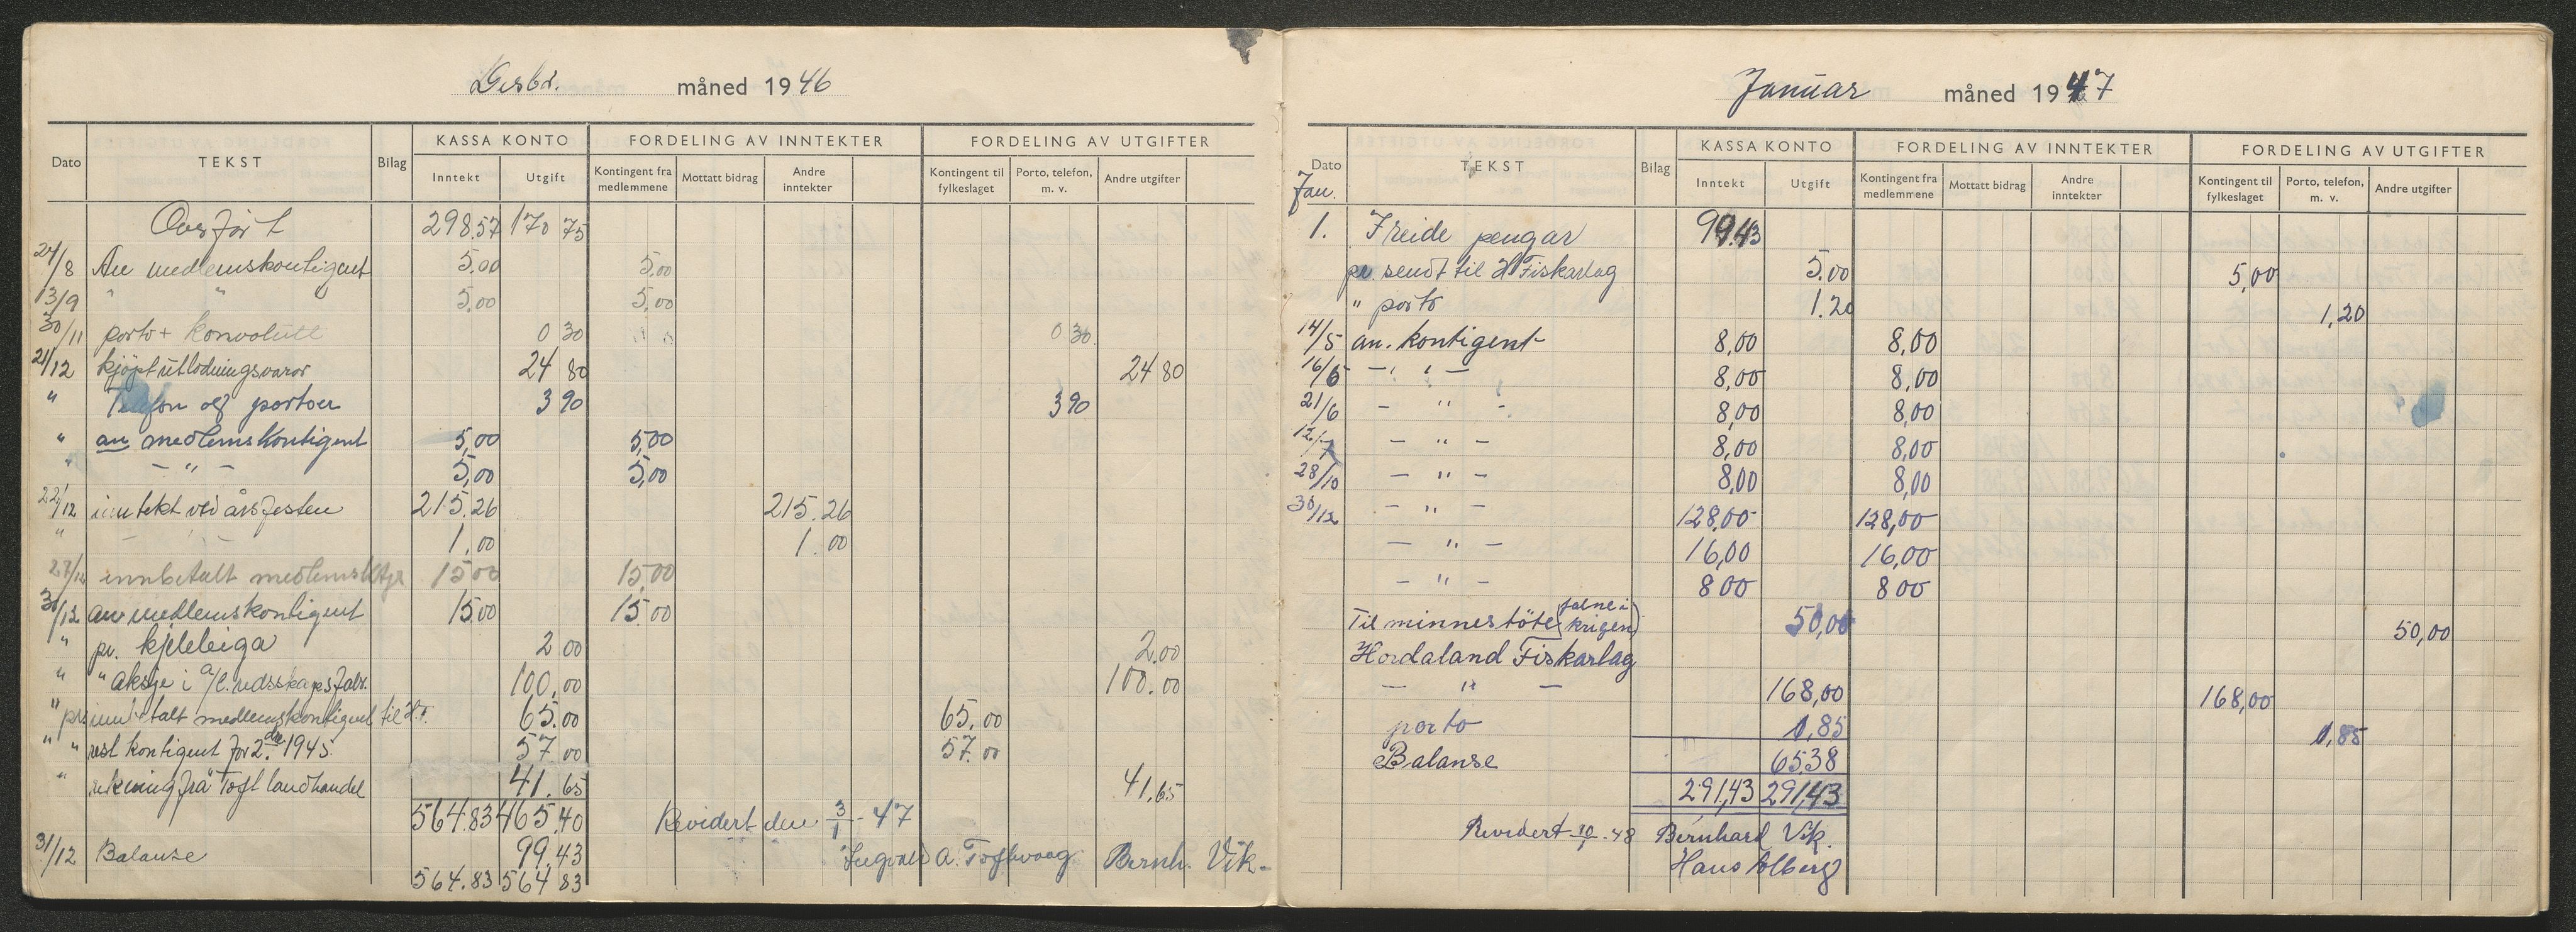 Desbr. måned 1946
Dato TEKST Bilag KASSA KONTO FORDELING AV INNTEKTER FORDELING AV UTGIFTER
Inntekt Utgift Kontingent fra medlemmene Mottatt bidrag Andre inntekter Kontingent til fylkeslaget Porto, telefon, m. v. Andre utgifter
Overført 298.57 170 75
24/8 An medlemskontigent 5.00 5.00
13/9 " " 5.00 5.00
30/11 porto + konvolutt 0 30 0 30
21/12 kjøpt utlodningsvaror 24 80 24 80
" Telefon og portoer 3 90 3 90
" an medlemskontigent 5,00 5,00
" – " – 5,00 5,00
22/12 inntekt ved årsfesten 215.26 215.26
" 1.00 1.00
27/12 innbetalt medlems 15 00 15,00
30/12 an medlemskontigent 15.00 15.00
" pr. kjeleleiga 2 00 2.00
" " aksje i a/l. redsskapsfabr. 100.00 100.00
" pr innbetalt medlemskontigent til H.F. 65.00 65.00
" " rest kontigent for 2. 1945. 57.00 57.00
" rekning frå Toft landhandel 41.65 41,65
564.83 465.40 Revidert den 3/1 - 47
31/12 Balanse 99.43 Ingvald A. Toftevaag Bernh. Vik-
564.83 564 83
Januar måned 1947
Dato TEKST Bilag KASSA KONTO FORDELING AV INNTEKTER FORDELING AV UTGIFTER
Inntekt Utgift Kontingent fra medlemmene Mottatt bidrag Andre inntekter Kontingent til fylkeslaget Porto, telefon, m. v. Andre utgifter
Jan.
1. Ireide pengar 99.43
pr. sendt til H Fiskarlag 5.00 5,00
" porto 1.20 1,20
14/5 an. kontigent 8,00 8,00
16/6 – " – 8,00 8,00
21/6 – " – 8,00 8,00
12/7 – " – 8,00 8,00
28/10 – " – 8,00 8,00
30/12 – " – 128,00 128,00
– " – 16,00 16,00
– " – 8 00 8 00
Til minnestöte (falne i krigen) 50,00 50,00
Hordaland Fiskarlag
– " – 168,00 168,00
porto 1,85 1,85
Balanse 65.38
291,43 291,43
Revidert 10/1 - 48 Bernhard Vik.
Hans Solberg